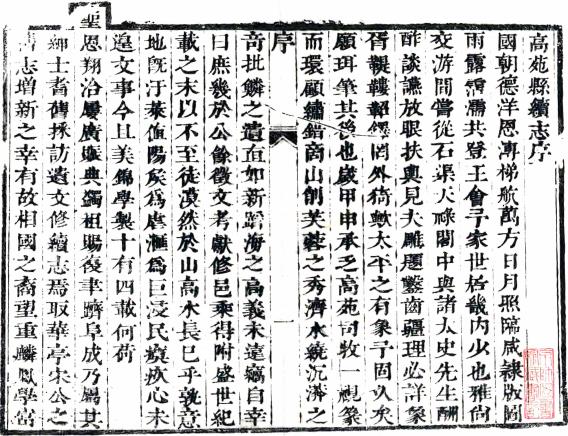 高苑縣續志序
國朝德洋恩溥梯航萬方日月照臨咸隸版圖
雨露霑濡共登王會予家世居畿內少也雅尚
交游間嘗從石渠天祿閣中與諸太史先生酬
酢談讌放眼扶輿見大雕題鑿齒疆理必詳象
胥鞮鞻韶鐸罔外猗歟太平之有象予固久矣
願珥筆其後也歲甲申承乏高苑司牧一視篆
而環顧繡錯商山削芙蓉之秀濟水繞沉漪之
序
奇批鱗之遺直如新蹈海之高義未遠竊自幸
曰庶幾於公餘徵文考獻修邑乘得附盛世紀
載之末以不至徒漠然於山高水長已乎孰意
地旣汙萊値陽矦爲虐滙爲巨浸民瘼疚心未
遑文事今且美錦學製十有四載何荷
聖
恩翔洽屢廣賑典蠲租賜復聿躋阜成乃屬其
紳士耆舊採訪遺文修續志焉取華亭宋公之
舊志增新之幸有故相國之裔望重麟鳳學富